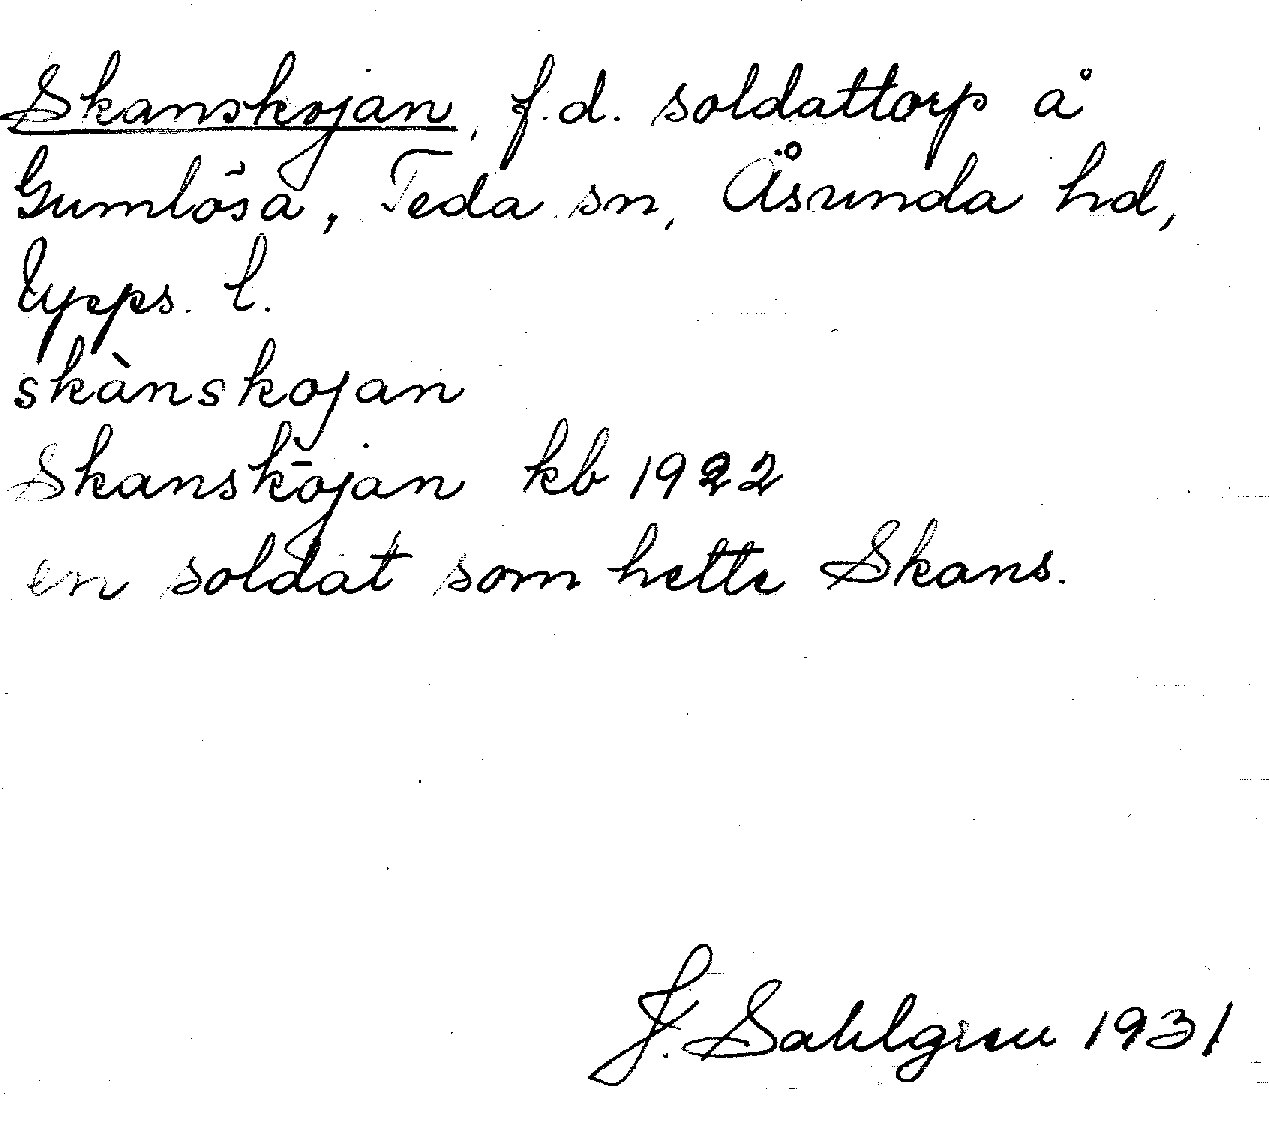 Skanskojan, f.d. soldattorp å
Gumlösa, Teda sn, Åsunda hd,
Upps. l.
skànskojan
Skansköjan kb 1922
en soldat som hette Skans.
J. Sahlgren 1931